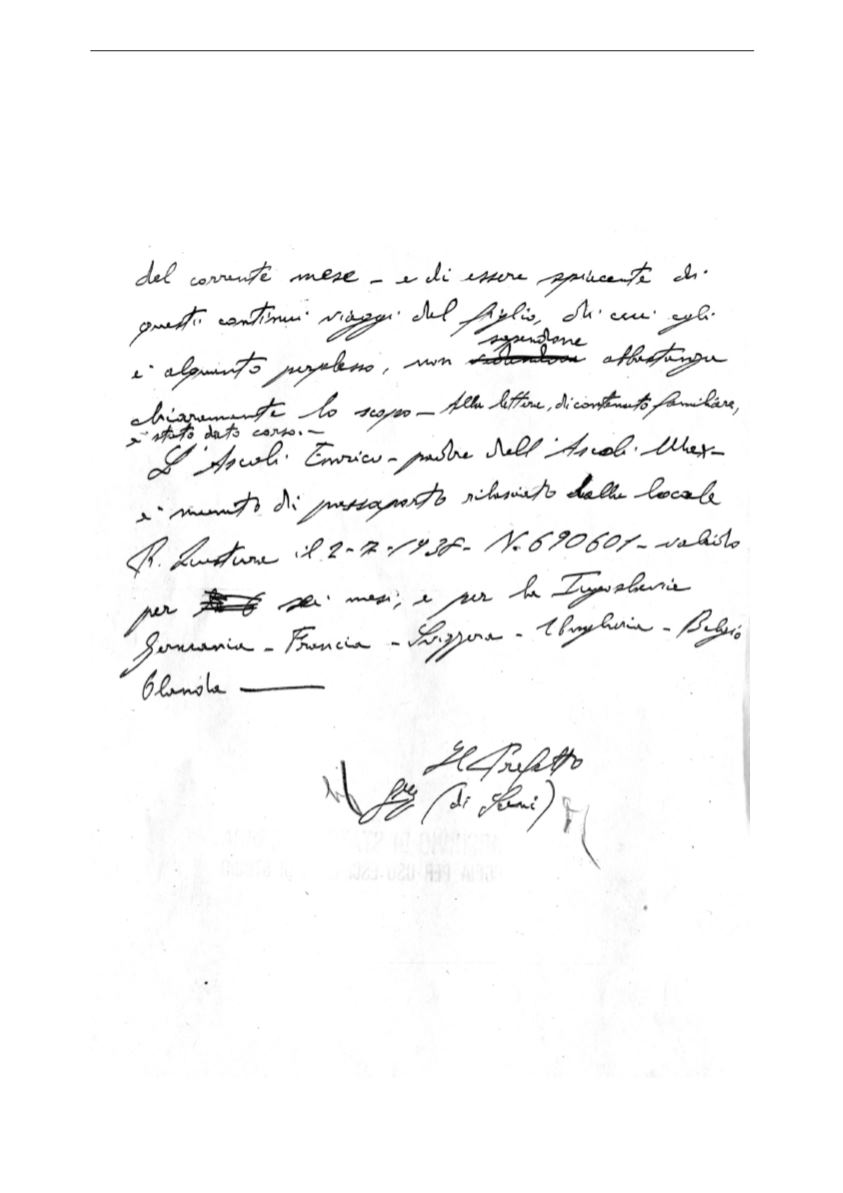 del corrente mese – e di essere spiacente di
questi continui viaggi del figlio, di cui egli
sapendone
è alquanto perplesso, non abbastanza
chiaramente lo scopo – Alle lettere, di contenuto familiare,
è stato dato corso. –
L'Ascoli Enrico – padre dell'Ascoli Max –
è munito di passaporto rilasciato dalla locale
R. Questura il 2-7-1938 – N. 690601 – valido
per sei mesi, e per la Jugoslavia
Germania – Francia – Svizzera – Ungheria – Belgio
Olanda —
Il Prefetto
(di Suni)